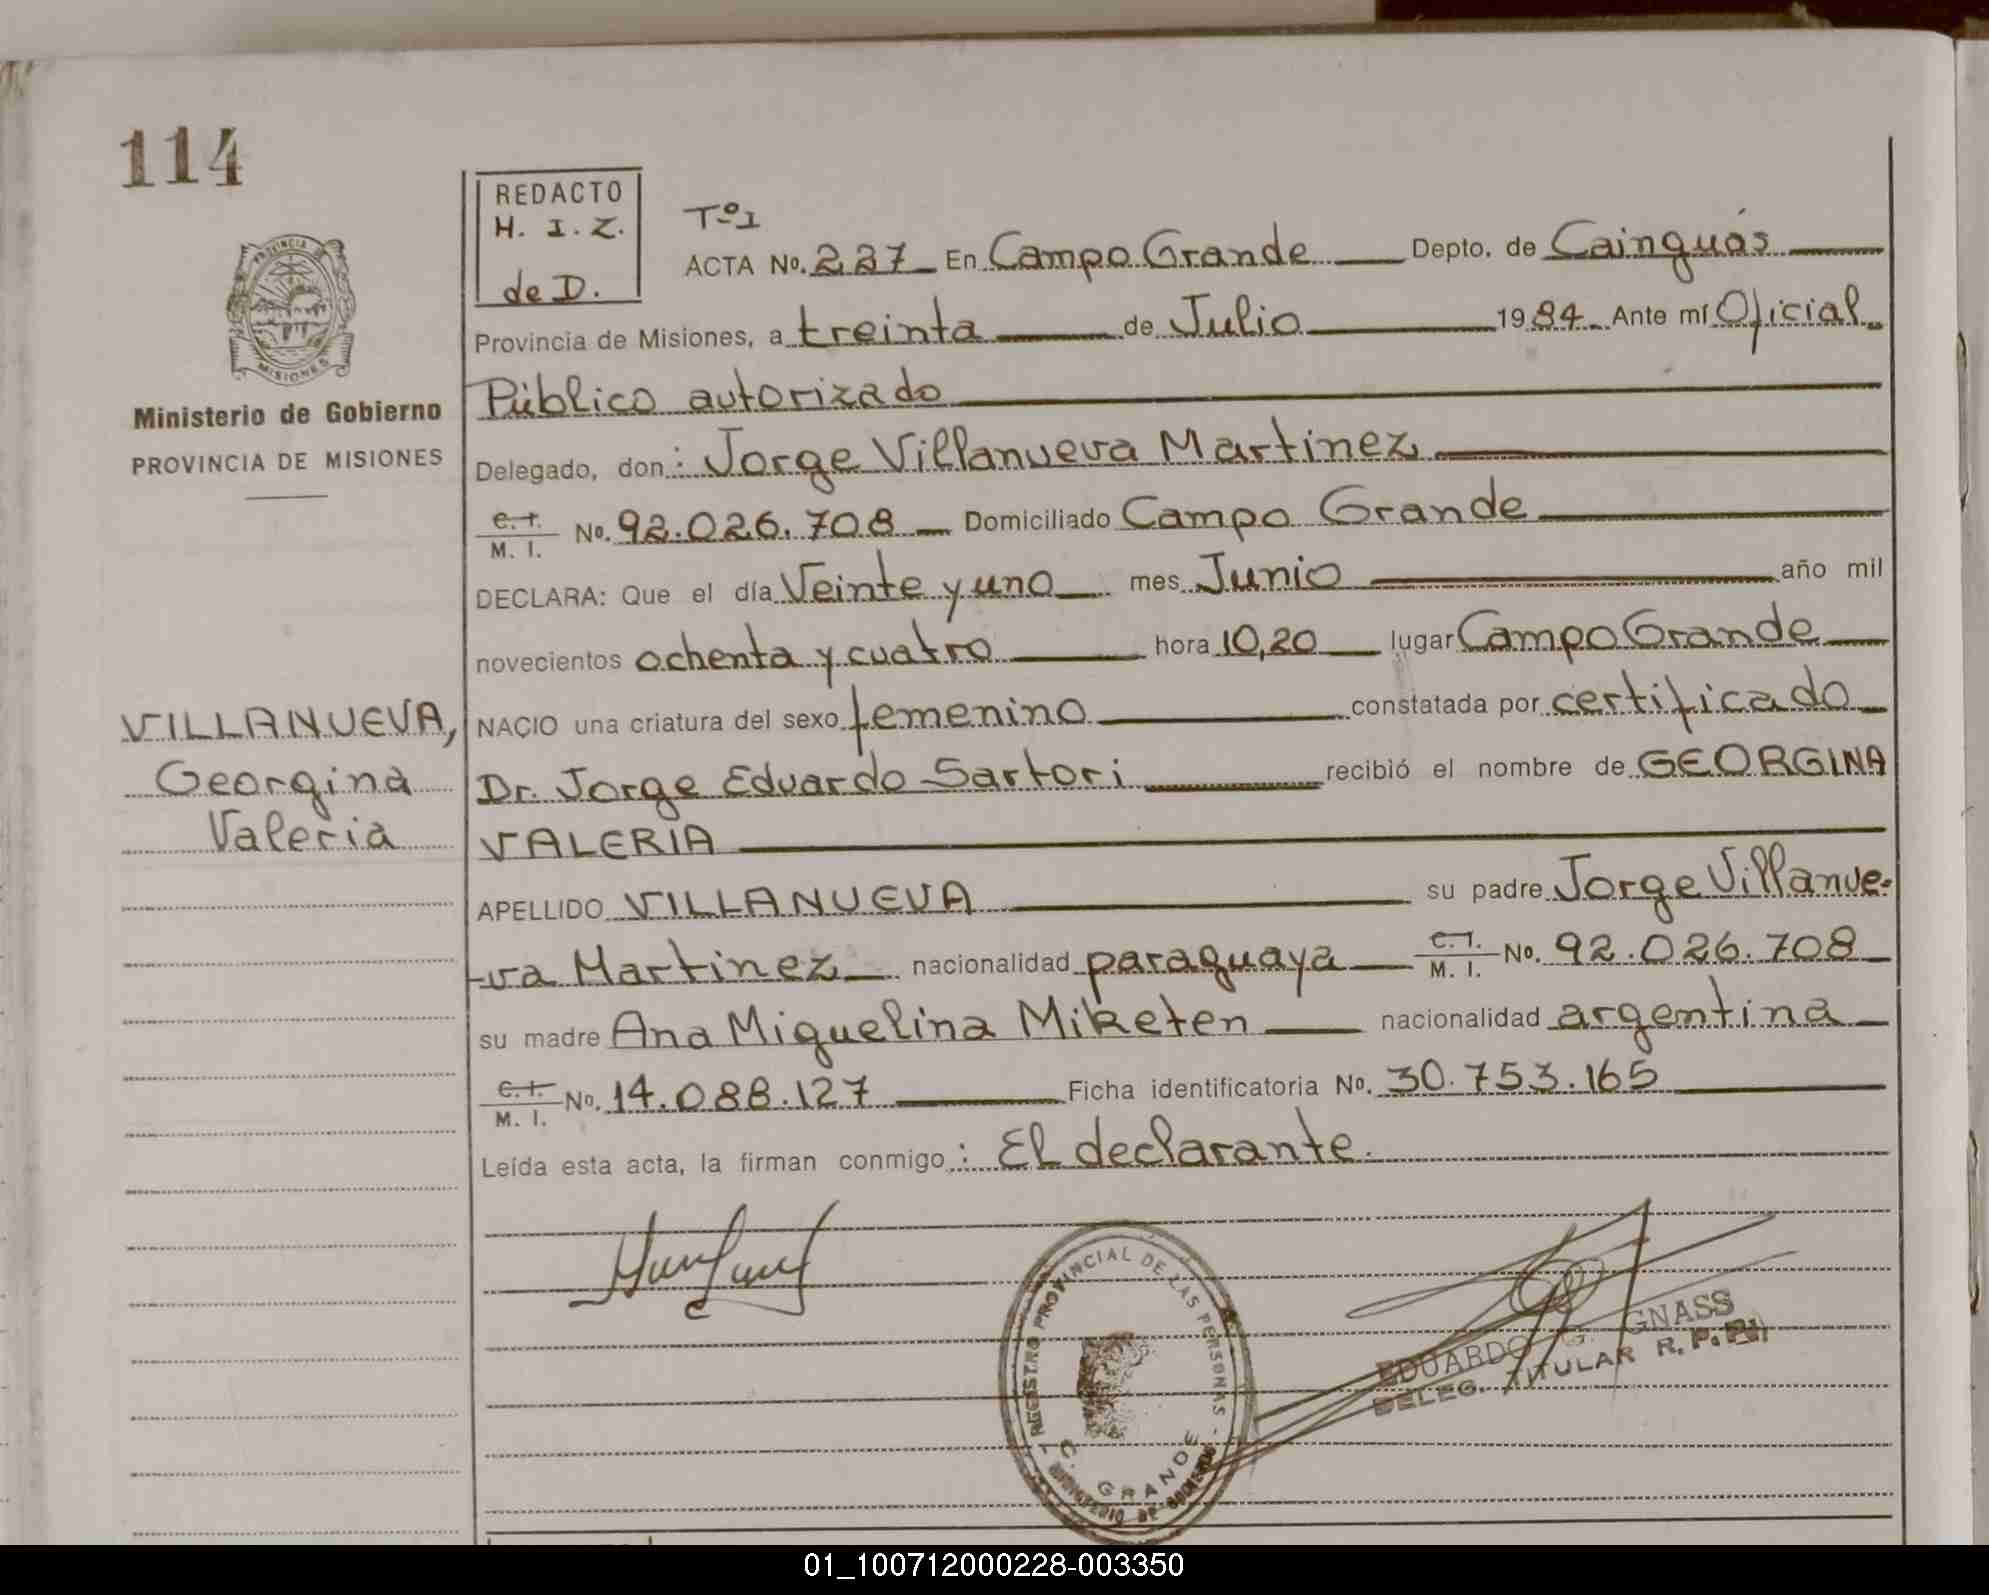 114
REDACTO
H. I. Z.
de D.
PROVINCIA DE
MISIONES
Ministerio de Gobierno
PROVINCIA DE MISIONES
VILLANUEVA,
Georgina
Valeria
Tº I
ACTA No. 227 En Campo Grande Depto. de Cainguás
Provincia de Misiones, a treinta de Julio 1984 Ante mí Oficial
Público autorizado
Delegado, don: Jorge Villanueva Martinez
C. I. / M. I. No. 92.026.708 Domiciliado Campo Grande
DECLARA: Que el día Veinte y uno mes Junio año mil
novecientos ochenta y cuatro hora 10,20 lugar Campo Grande
NACIO una criatura del sexo femenino constatada por certificado
Dr. Jorge Eduardo Sartori recibió el nombre de GEORGINA
VALERIA
APELLIDO VILLANUEVA su padre Jorge Villanue-
-va Martinez nacionalidad paraguaya C. I. / M. I. No. 92.026.708
su madre Ana Miguelina Miketen nacionalidad argentina
C. I. / M. I. No. 14.088.127 Ficha identificatoria No. 30.753.165
Leída esta acta, la firman conmigo: El declarante.
REGISTRO PROVINCIAL DE LAS PERSONAS -
C. GRANDE
MINISTERIO DE GOBIERNO
EDUARDO G. GNASS
DELEG. TITULAR R. P. P.
01_100712000228-003350